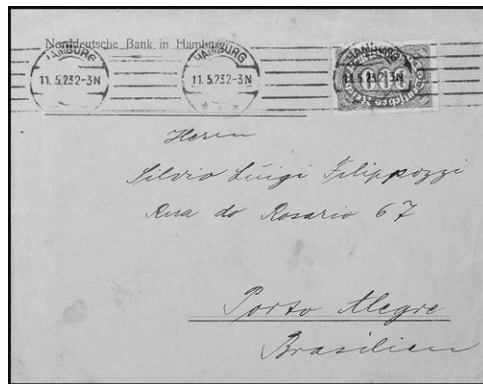 Norddeutsche Bank in Hamburg
HAMBURG
11.5.23 2-3N
HAMBURG
11.5.23 2-3N
HAMBURG
11.5.23 2-3N
Deutsches Reich
Herrn
Silvio Luigi Filippozzi
Rua do Rosario 67
Porto Alegre
Brasilien